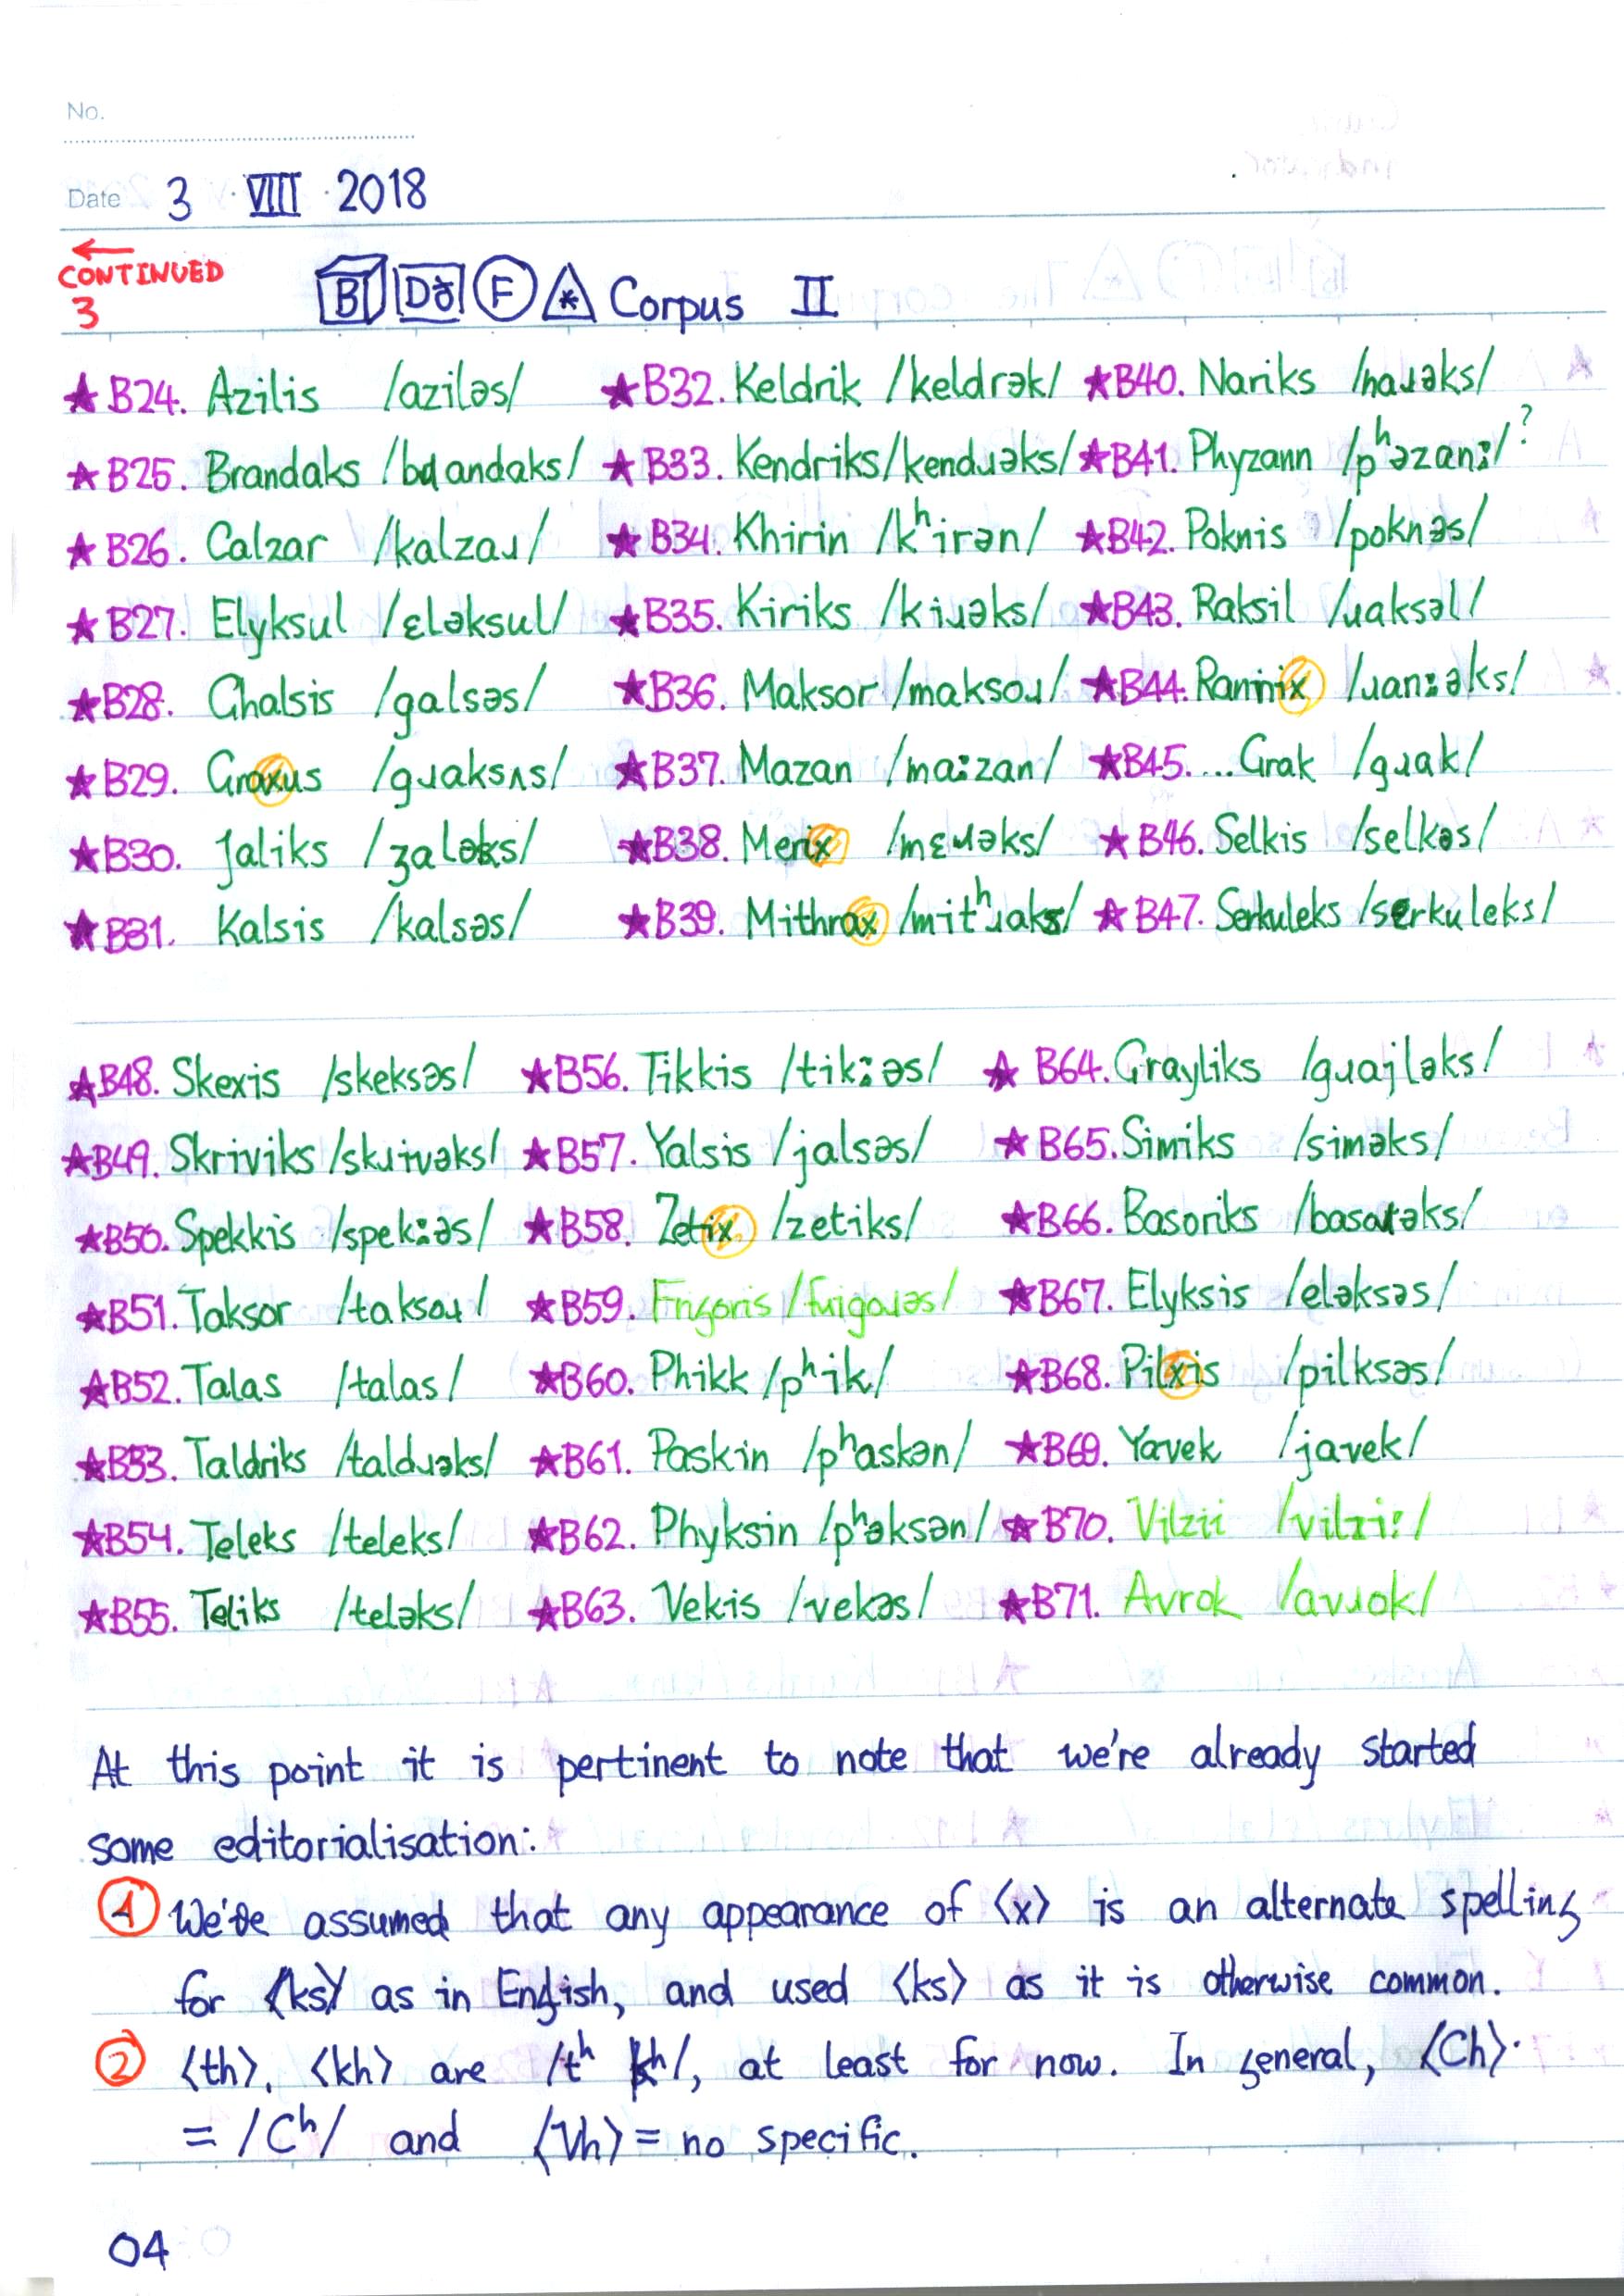 No.
Date 3 · VIII · 2018
←
CONTINUED
3
B Dð F * Corpus II
★B24. Azilis /aziləs/ ★B32. Keldrik /keldrək/ ★B40. Nariks /naɹəks/
★B25. Brandaks /bɹandaks/ ★B33. Kendriks /kendɹəks/ ★B41. Phyzann /pʰəzanː/?
★B26. Calzar /kalzaɹ/ ★B34. Khirin /kʰirən/ ★B42. Poknis /poknəs/
★B27. Elyksul /ɛləksul/ ★B35. Kiriks /kiɹəks/ ★B43. Raksil /ɹaksəl/
★B28. Ghalsis /galsəs/ ★B36. Maksor /maksoɹ/ ★B44. Rannix /ɹanːəks/
★B29. Graxus /gɹaksʌs/ ★B37. Mazan /maːzan/ ★B45. ...Grak /gɹak/
★B30. Jaliks /ʒaləks/ ★B38. Merix /mɛɹəks/ ★B46. Selkis /selkəs/
★B31. Kalsis /kalsəs/ ★B39. Mithrax /mitʰɹaks/ ★B47. Serkuleks /serkuleks/
★B48. Skexis /skeksəs/ ★B56. Tikkis /tikːəs/ ★B64. Grayliks /gɹajləks/
★B49. Skriviks /skɹivəks/ ★B57. Yalsis /jalsəs/ ★B65. Simiks /siməks/
★B50. Spekkis /spekːəs/ ★B58. Zetix /zetiks/ ★B66. Basoriks /basoɹəks/
★B51. Taksor /taksoɹ/ ★B59. Frigoris /fɹigoɹəs/ ★B67. Elyksis /eləksəs/
★B52. Talas /talas/ ★B60. Phikk /pʰik/ ★B68. Pilxis /pilksəs/
★B53. Taldriks /taldɹəks/ ★B61. Paskin /pʰaskən/ ★B69. Yavek /javek/
★B54. Teleks /teleks/ ★B62. Phyksin /pʰəksən/ ★B70. Vilzii /vilziː/
★B55. Teliks /teləks/ ★B63. Vekis /vekəs/ ★B71. Avrok /avɹok/
At this point it is pertinent to note that we're already started
some editorialisation:
1 We've assumed that any appearance of ⟨x⟩ is an alternate spelling
for ⟨ks⟩ as in English, and used ⟨ks⟩ as it is otherwise common.
2 ⟨th⟩, ⟨kh⟩ are /tʰ kʰ/, at least for now. In general, ⟨Ch⟩
= /Cʰ/ and ⟨Vh⟩ = no specific.
04